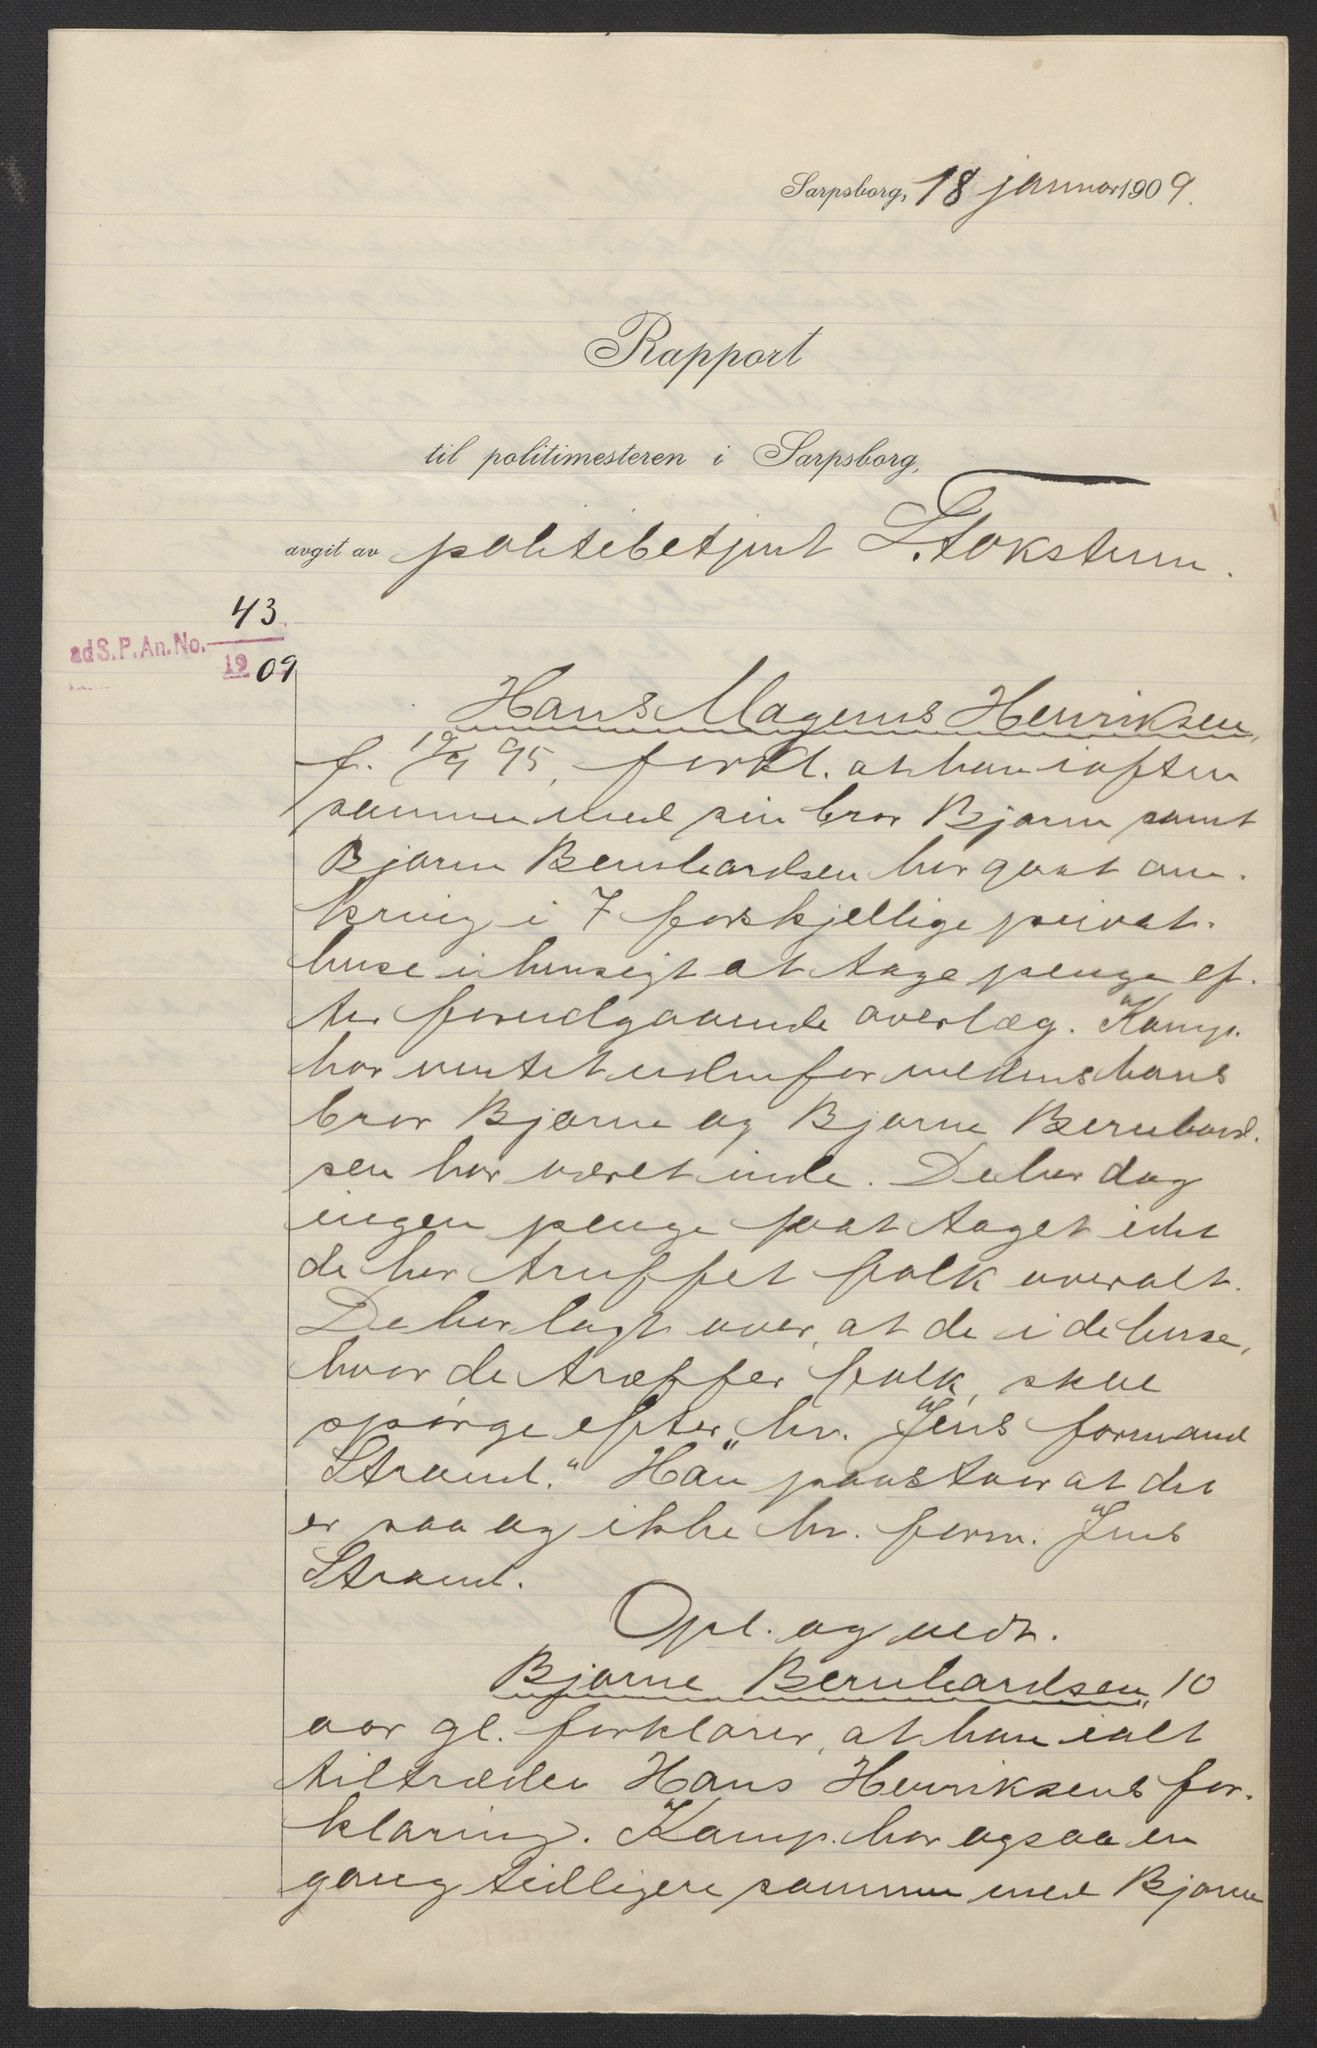 Sarpsborg, 18 januar 1909.
Rapport
til politimesteren i Sarpsborg,
avgit av politibetjent Stokstun.
ad S. P. An. No. 43
1909
Hans Magnus Henriksen,
f. 19/9 95, forkl. at han iaften
sammen med sin bror Bjarne samt
Bjarne Bernhardsen har gaat om-
kring i 7 forskjellige privat-
huse i hensigt at tage penge ef-
ter forudgaaende overlæg. Komp.
har ventet udenfor medens hans
bror Bjarne og Bjarne Bernhard-
sen har været inde. De har dog
ingen penge faat taget idet
de har truffet folk overalt.
De har lagt over, at de i de huse,
hvor de træffer folk, skal
spørge efter „hr. Jens formand
Strand.“ Han paastaar at det
er saa og ikke hr. form. Jens
Strand.
Opl. og vedt.
Bjarne Bernhardsen, 10
aar gl. forklarer, at han ialt
tiltræder Hans Henriksens for-
klaring. Komp. har ogsaa en
gang tidligere sammen med Bjarne